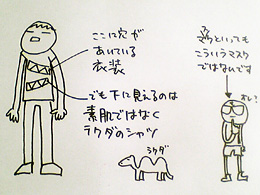 ここに穴が
あいている
衣装
でも下に見えるのは
素肌ではなく
ラクダのシャツ
ラクダ
マスクといっても
こういうマスク
ではないです